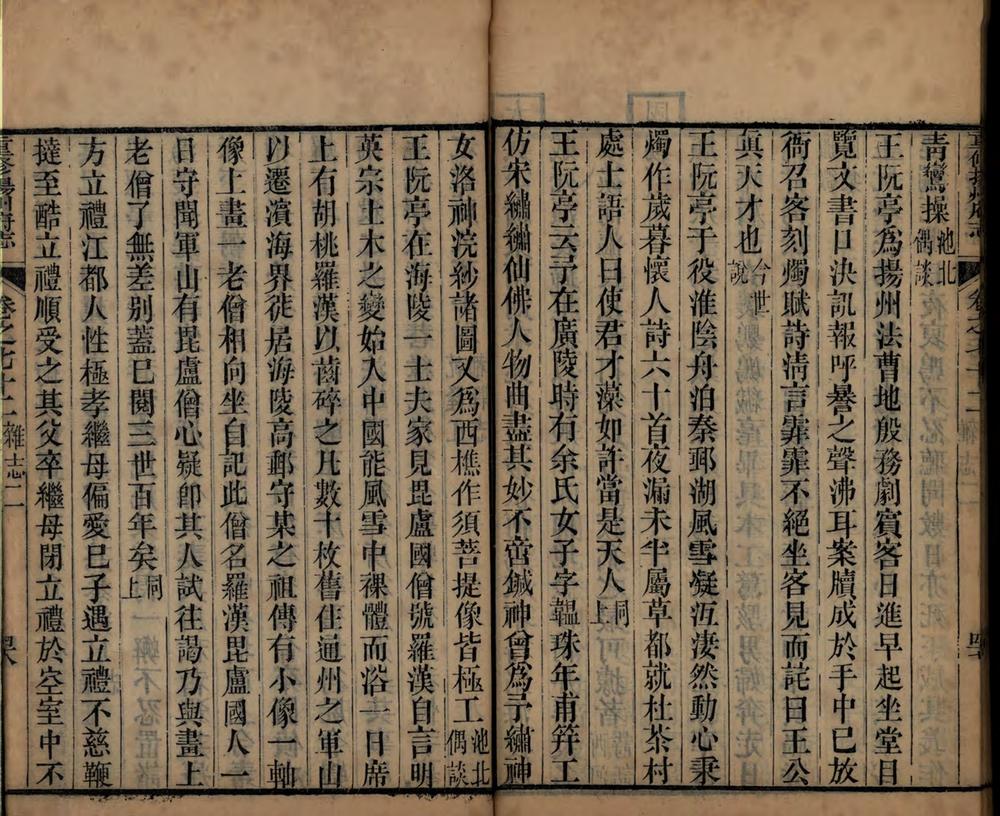 青鸞操池北偶談
王阮亭為揚州法曹地殷務劇賓客日進早起坐堂日
覽文書口決訊報呼謈之聲沸耳案牘成於手中已放
衙召客刻燭賦詩淸言霏霏不絕坐客見而詫曰王公
眞天才也今世說
王阮亭于役淮陰舟泊秦郵湖風雪凝沍淒然動心秉
燭作歲暮懷人詩六十首夜漏未半屬草都就杜茶村
處士語人曰使君才藻如許當是天人同上
王阮亭云予在廣陵時有余氏女子字韞珠年甫筓工
仿宋繡繡仙佛人物曲盡其妙不啻鍼神曾為予繡神
女洛神浣紗諸圖又為西樵作須菩提像皆極工池北偶談
王阮亭在海陵一士夫家見毘盧國僧號羅漢自言明
英宗土木之變始入中國能風雪中裸體而浴一日席
上有胡桃羅漢以齒碎之凡數十枚舊住通州之軍山
以遷濱海界徙居海陵高郵守某之祖傳有小像一軸
像上畫一老僧相向坐自記此僧名羅漢毘盧國人一
日守聞軍山有毘盧僧心疑卽其人試往謁乃與畫上
老僧了無差別蓋已閱三世百年矣同上
方立禮江都人性極孝繼母偏愛已子遇立禮不慈鞭
撻至酷立禮順受之其父卒繼母閉立禮於空室中不
重修揚州府志
卷之七十二雜志二